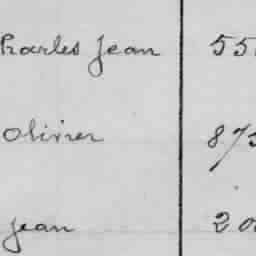 harles Jean 55
Olivier 873
Jean 20